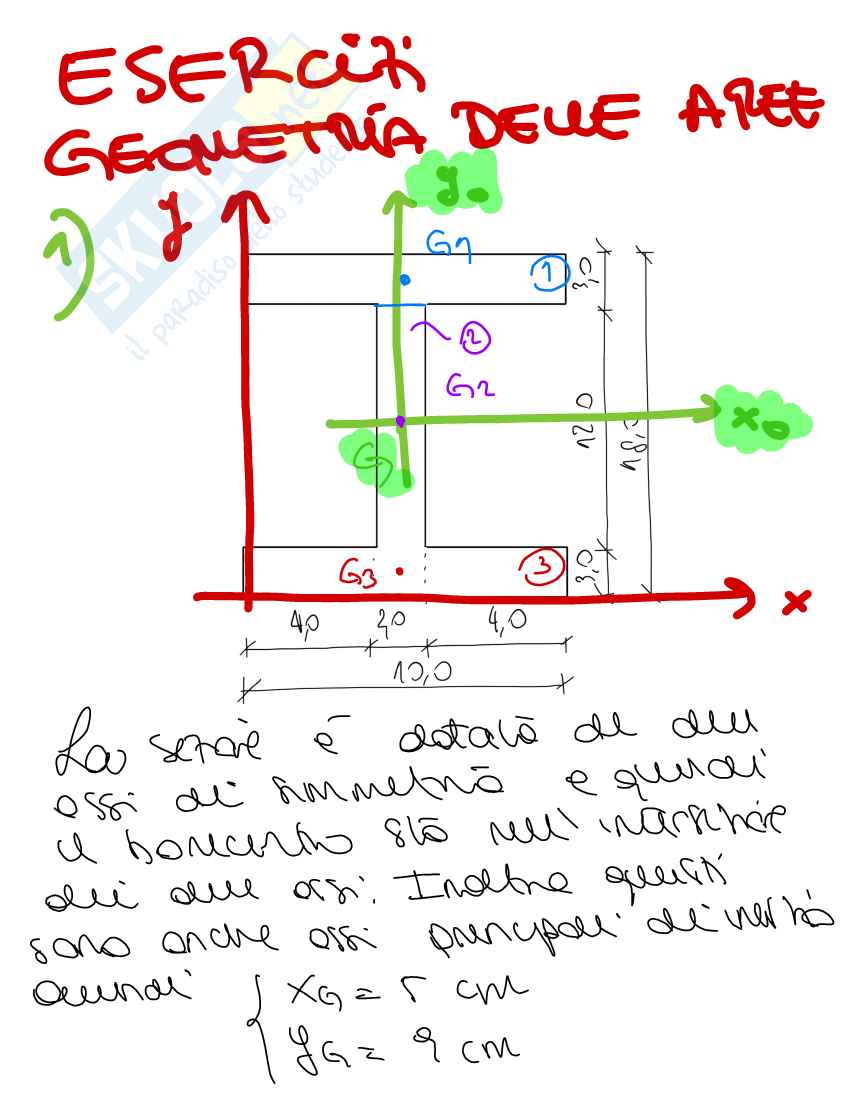 ESERCIZI
GEOMETRIA DELLE AREE
SKUOLA.net
il paradiso dello studente
1)
y
y₀
G1
1
3,0
2
G2
12,0
18,0
x₀
G
G3
3
3,0
x
4,0
2,0
4,0
10,0
La sezione è dotata di due
assi di simmetria e quindi
il baricentro sta nell'intersezione
dei due assi. Inoltre questi
sono anche assi principali di inerzia
quindi
xG = 5 cm
yG = 9 cm